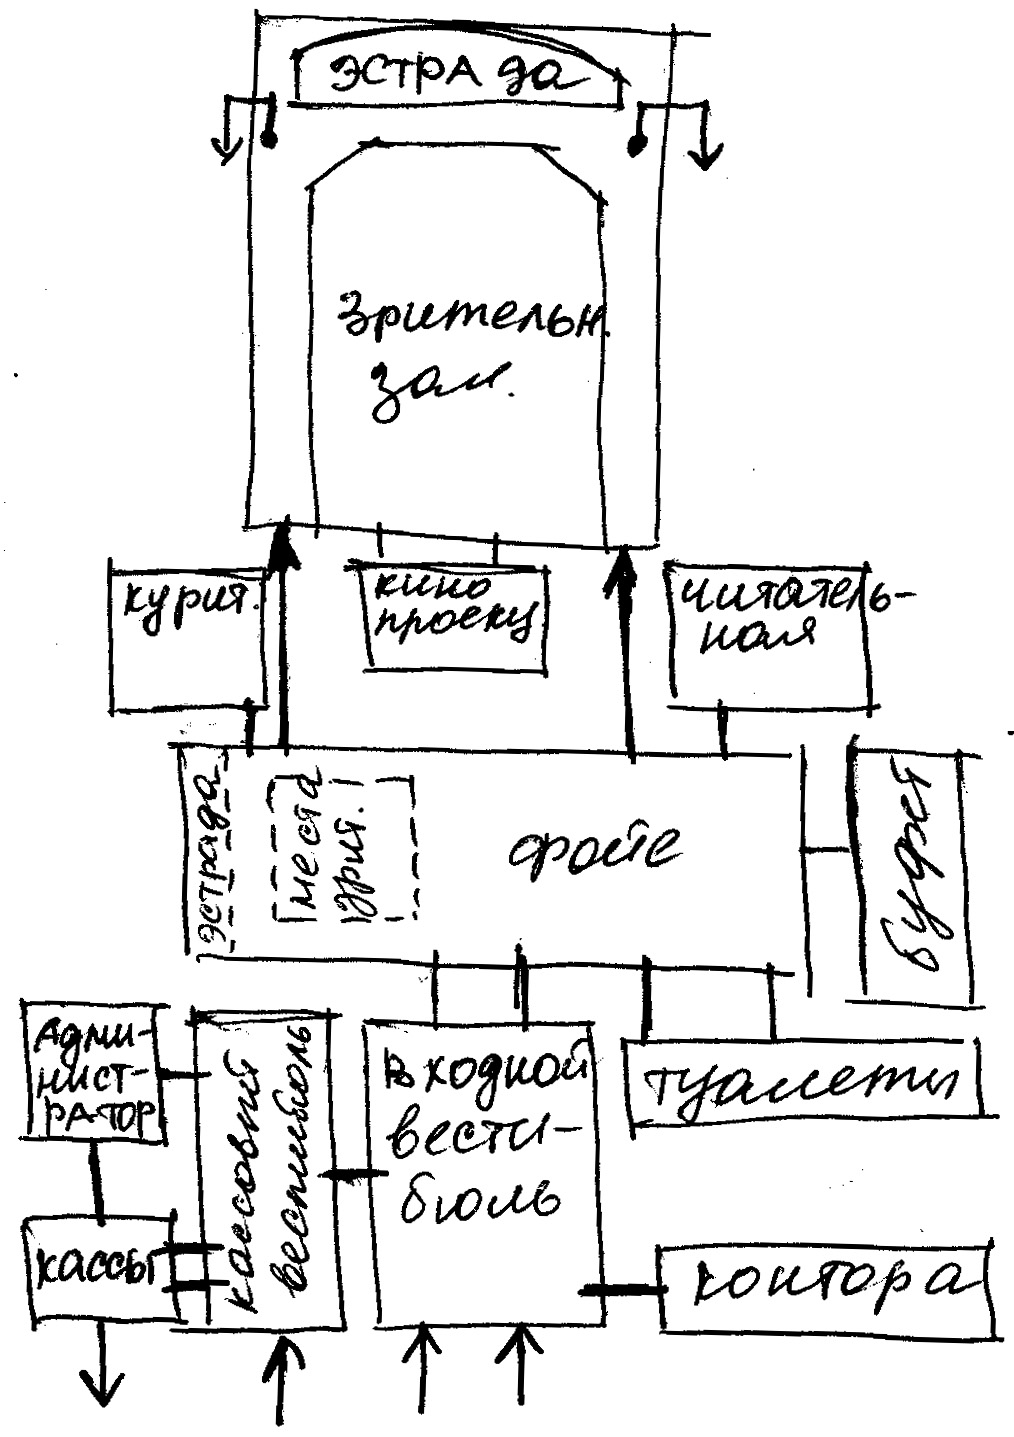 ЭСТРАда
зрительн.
зал.
курит.
кино
проекц
читатель-
ная
эстрада
места
зрит.
фойе
буфет
Адми-
нист-
ратор
кассовый
вестибюль
Входной
вести-
бюль
туалеты
кассы
контора